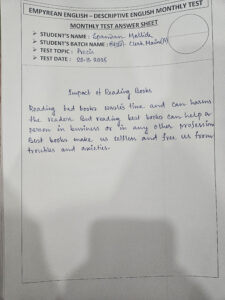 EMPYREAN ENGLISH – DESCRIPTIVE ENGLISH MONTHLY TEST
MONTHLY TEST ANSWER SHEET
➢ STUDENT'S NAME :
➢ STUDENT'S BATCH NAME : Clerk Main
➢ TEST TOPIC : Precis
➢ TEST DATE :
Impact of Reading Books
Reading bad books waste's time and can harms
the readers. But reading best books can help a
person in business or in any other profession
Best books make us selfless and free us from
troubles and anxieties.